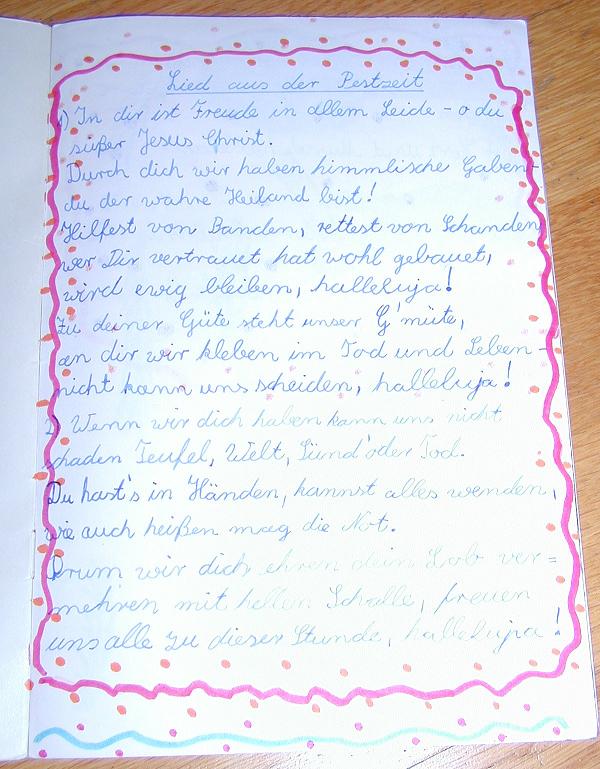 Lied aus der Pestzeit
1) In dir ist Freude in allem Leide - o du
süßer Jesus Christ.
Durch dich wir haben himmlische Gaben -
du der wahre Heiland bist!
Hilfest von Banden, rettest von Schanden
wer Dir vertrauet hat wohl gebauet,
wird ewig bleiben, halleluja!
Zu deiner Güte steht unser G'müte,
an dir wir kleben im Tod und Leben -
nicht kann uns scheiden, halleluja!
2) Wenn wir dich haben kann uns nicht
schaden Teufel, Welt, Sünd' oder Tod.
Du hast's in Händen, kannst alles wenden,
wie auch heißen mag die Not.
Drum wir dich ehren dein Lob ver=
mehren mit hellem Schalle, freuen
uns alle zu dieser Stunde, halleluja!